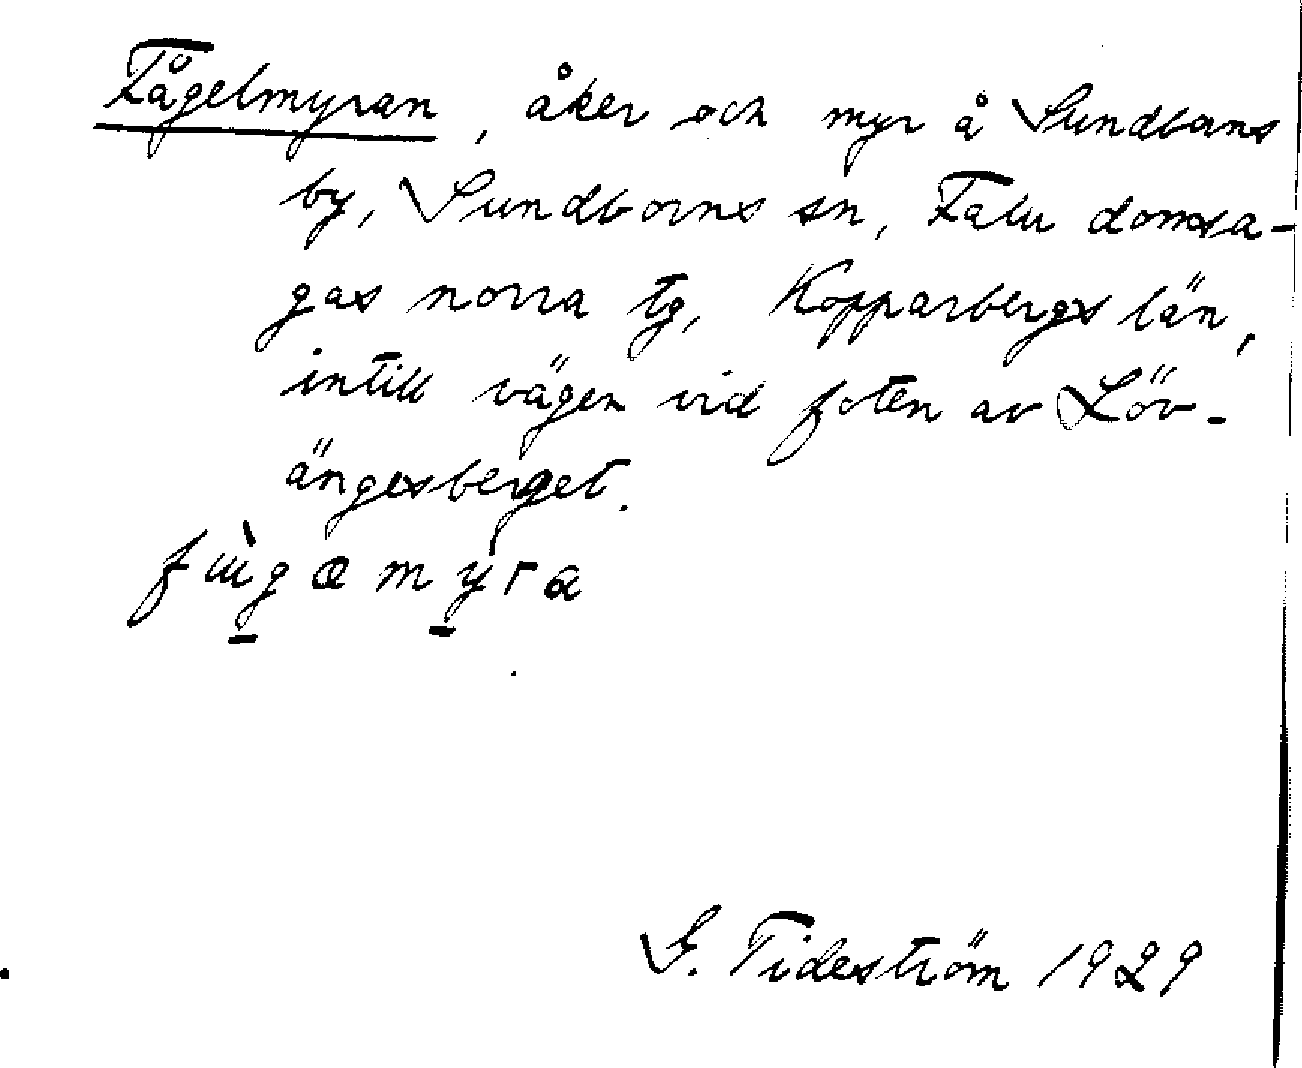 Fågelmyran, åker och myr å Sundborns
by, Sundborns sn, Falu domsa-
gas norra tg, Kopparbergs län,
intill vägen vid foten av Löv-
ängesberget.
G. Tideström 1929